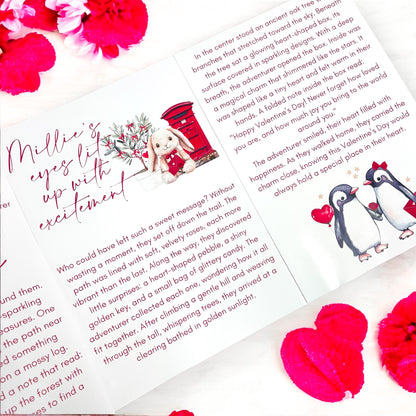 ound them,
-sparkling
easures. One
the path near
nd something
on a mossy log.
d a note that read:
up the forest with
es to find a
Millie's
eyes lit
up with
excitement
Who could have left such a sweet message? Without
wasting a moment, they set off down the trail. The
path was lined with soft, velvety roses, each more
vibrant than the last. Along the way, they discovered
little surprises: a heart-shaped pebble, a shiny
golden key, and a small bag of glittery candy. The
adventurer collected each one, wondering how it all
fit together. After climbing a gentle hill and weaving
through the tall, whispering trees, they arrived at a
clearing bathed in golden sunlight.
In the center stood an ancient oak tree
branches that stretched toward the sky. Beneath
the tree sat a glowing heart-shaped box, its
surface covered in sparkling designs. With a deep
breath, the adventurer opened the box. Inside was
a magical charm that shimmered like the stars. It
was shaped like a tiny heart and felt warm in their
hands. A folded note inside the box read:
"Happy Valentine's Day! Never forget how loved
you are, and how much joy you bring to the world
around you."
The adventurer smiled, their heart filled with
happiness. As they walked home, they carried the
charm close, knowing this Valentine's Day would
always hold a special place in their heart.